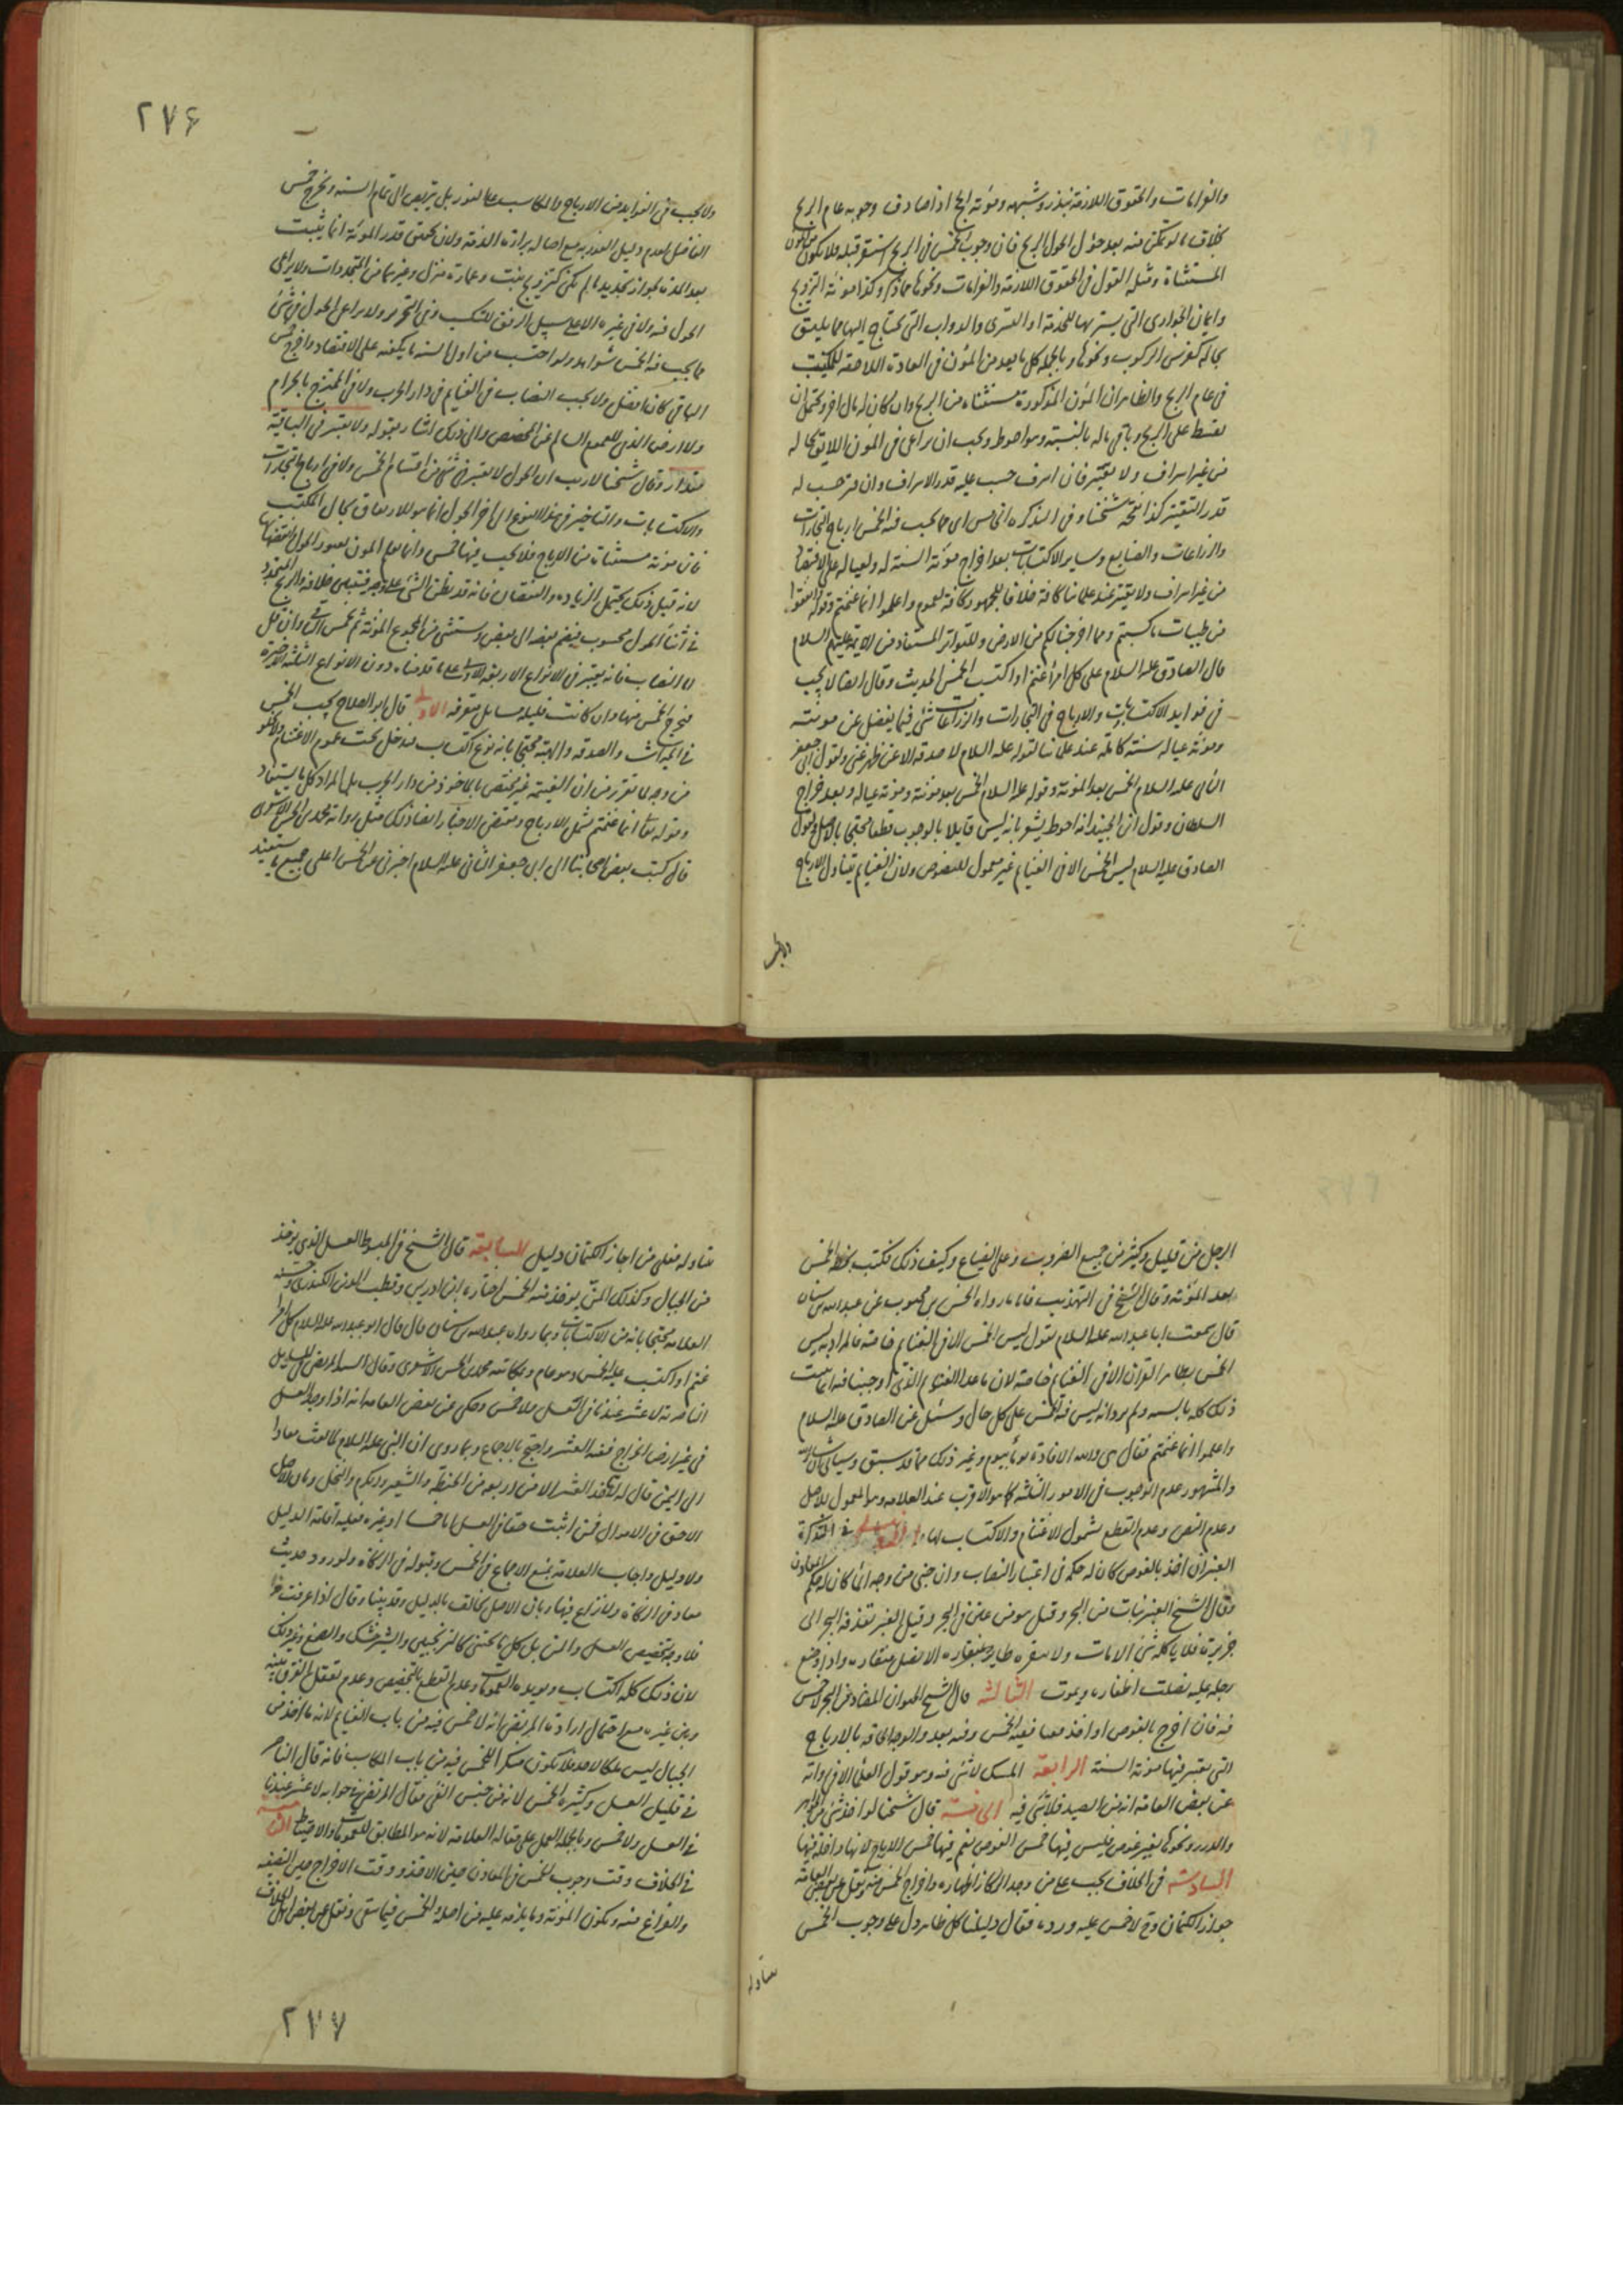 والغرامات والحقوق اللازمة بنذر وشبهه ومؤنة الحج اذا صادف وجوبه عام الربح
بخلاف ما لو تمكن منه بعد حؤل الحول الربح فان وجوب الخمس فى الربح استقر قبله فلا يكون من المؤن
المستثناة ومثله القول فى الحقوق اللازمة والغرامات ونحوها مما ذكر وكذا مونة التزويج
واثمان الجوارى التى يشتريها للخدمة او التسرى والدواب التى يحتاج اليها مما يليق
بحاله كفرس الركوب ونحوها وبالجملة كل ما يعد من المؤن فى العادة اللاحقة للمكتسب
فى عام الربح والظاهر ان المؤن المذكورة مستثناة من الربح وان كان له مال اخر ويحتمل ان
يقسط على الربح وباقى ماله بالنسبة وهو احوط ويجب ان يراعى فى المؤن اللايق بحاله
من غير اسراف ولا يقتر فان اسرف حسب عليه قدر الاسراف وان قتر حسب له
قدر التقتير كذا نقحه شيخنا وفى التذكرة الخامس اى مما يجب فيه الخمس ارباح التجارات
والزراعات والصنايع وساير الاكتسابات بعد اخراج مؤنة السنة له ولعياله على الاقتصاد
من غير اسراف ولا يقتر عند علمائنا كافة خلافا للجمهور كافة لعموم واعلموا انما غنمتم وقوله انفقوا
من طيبات ما كسبتم ومما اخرجنا لكم من الارض وللتواتر المستفاد من الائمة عليهم السلام
قال الصادق عليه السلام على كل امرأ غنم او اكتسب الخمس الحديث وقال ايضا لا يجب
فى فوايد الاكتسابات والارباح فى التجارات والزراعات شئ الا فيما يفضل عن مونته
ومونة عياله سنة كاملة عند علمائنا لقوله عليه السلام لا صدقة الا عن ظهر غنى ولقول ابى جعفر
الثانى عليه السلام الخمس بعد المؤنة وقوله عليه السلام الخمس بعد مونته ومونة عياله وبعد خراج
السلطان وقول ابن الجنيد انه احوط يشعر بانه ليس قايلا بالوجوب قطعا محتجا بالاصل وبقول
الصادق عليه السلام ليس الخمس الا فى الغنايم غير معمول للنصوص ولان الغنايم يتناول الارباح
٢٧۶
ولا يجب فى الفوايد من الارباح والمكاسب على الفور بل يتربص الى تمام السنة ويخرج خمس
الفاضل لعدم دليل الفورية مع اصالة براءة الذمة ولان تحقق قدر المؤنة انما يثبت
بعد المدة لجواز تجديد ما لم يكن كتزويج بنت وعمارة منزل وغيرهما من المتجددات ولا يراعى
الحول فيه ولا فى غيره الا على سبيل الرفق للمكتسب وفى التحرير ولا يراعى الحول فى شئ
مما يجب فيه الخمس سواه ولو احتسب من اول السنة ما يكفيه على الاقتصاد واخرج خمس
الباقى كان افضل ولا يجب النصاب فى الغنايم فى دار الحرب ولا فى الممتزج بالحرام
ولا ارض الذمى للعموم السالم عن المخصص والى ذلك اشار بقوله ولا يعتبر فى الباقية
مقدار وقال شيخنا لا ريب ان الحول لا يعتبر فى شئ من اقسام الخمس ولا فى ارباح التجارات
والاكتسابات والتاخير فى هذا النوع الى اخر الحول انما هو للارفاق بحال المكتسب
فان مونته مستثناة من الارباح فلا يجب فيها خمس وانما يعلم المون بعود الحول لا بعضها
لانه قبل ذلك يحتمل الزيادة والنقصان فانه قد يظن الشئ على وجه فيتبين خلافه والربح المتجدد
فى اثناء الحول محسوب فيضم بعضه الى بعض ويستثنى من المجموع المؤنة ثم يخمس الباقى وان قل
لا النصاب فانه يعتبر فى الانواع الاربعة الاول على ما قدمناه دون الانواع الثلثة الاخيرة
فيخرج الخمس منها وان كانت قليلة مسايل متفرقة الاولى قال ابو الصلاح يجب الخمس
فى الميراث والصدقة والهبة محتجا بانه نوع اكتساب فيدخل تحت عموم الاغتنام
من وجه لما تقرر من ان الغنيمة غير مختص بالماخوذ من دار الحرب بل المراد كل ما يستفاد
وقوله تعالى انما غنمتم يشمل الارباح ومقتضى الاخبار ايضا ذلك مثل رواية محمد بن الحسن الاشعرى
قال كتب بعض اصحابنا الى ابى جعفر الثانى عليه السلام اخبرنى عن الخمس اعلى جميع ما يستفيد
الرجل من قليل وكثير من جميع الضروب وعلى الضياع وكيف ذلك فكتب بخطه الخمس
بعد المؤنة وقال الشيخ فى التهذيب فاما ما رواه الحسن بن محبوب عن عبد الله بن سنان
قال سمعت ابا عبد الله عليه السلام يقول ليس الخمس الا فى الغنايم خاصة فالمراد به ليس
الخمس بظاهر القران الا فى الغنايم خاصة لان ما عدا الغنايم الذى اوجبنا فيه انما يثبت
ذلك كله بالسنة ولم يرد انه ليس فيه الخمس على كل حال وسئل عن الصادق عليه السلام
واعلموا انما غنمتم فقال هى والله الافادة يوما بيوم وغير ذلك مما قد سبق وسياتى
والمشهور عدم الوجوب فى الامور الثلثة كما هو الاقرب عند العلامة وهو المعمول للاصل
وعدم النص وعدم القطع بشمول الاغتنام والاكتساب لها فى التذكرة
العنبر ان اخذ بالغوص كان له حكمه فى اعتبار النصاب وان جنى من وجه الماء كان له حكم المعادن
وقال الشيخ العنبر نبات من البحر وقيل هو من عين فى البحر وقيل العنبر يقذفه البحر الى
جزيرة فلا ياكله شئ الا مات ولا ينقره طاير بمنقاره الا نصل منقاره واذا وضع
رجله عليه نصلت اظفاره ويموت الثالثة قال الشيخ الحيوان المصاد من البحر لا خمس
فيه فان اخرج بالغوص او اخذ قفيا ففيه الخمس وفيه بعد والوجه الحاقه بالارباح
التى يعتبر فيها مونة السنة الرابعة المسك لا شئ فيه وهو قول العلماء الا فى رواية
عن بعض العامة انه من الصيد فلا شئ فيه الخامسة قال شيخنا لو اخذ شئ من الجواهر
والدرر ونحوها بغير غوص فليس فيها خمس الغوص نعم فيها خمس الارباح لانها داخلة فيها
السادسة فى الخلاف يجب على من وجد الركاز اظهاره واخراج الخمس منه ونقل عن بعض العامة
جواز الكتمان وح لا خمس عليه ورده فقال دليلنا كل ظاهر دل على وجوب الخمس
يتناوله
يتناوله فعلى من اجاز الكتمان دليل السابعة قال الشيخ فى المبسوط العسل الذى يوخذ
من الجبال وكذلك المن يوخذ منه الخمس اختاره ابن ادريس وقطب الدين الكيدرى
العلامة محتجا بانه من الاكتسابات وبما رواه عبد الله بن سنان قال قال ابو عبد الله عليه السلام على كل امرأ
غنم او اكتسب عليه الخمس وهو عام ومكاتبة محمد بن الحسن الاشعرى وقال السيد المرتضى
الناصرية لا عشر عندنا فى العسل ولا خمس وحكى عن بعض العامة انه اذا وجد العسل
فى غير ارض الخراج ففيه العشر واحتج بالاجماع وبما روى ان النبى عليه السلام لما بعث معاذا
الى اليمن قال له لا تاخذ العشر الا من اربعة من الحنطة والشعير والكرم والنخل وبان الاصل
الا حق فى الاموال فمن اثبت حقا فى العسل اما خمسا او غيره فعليه اقامة الدليل
ولا دليل واجاب العلامة بمنع الاجماع فى الخمس وقبوله فى الزكاة ولورود حديث
معاذ فى الزكاة ولا نزاع فيها وبان الاصل يخالف بالدليل وقد بيناه وقال اذا عرفت هذا
فلا وجه لتخصيص العسل والمن بل كل ما يجتنى كالترنجبين والشيرخشك والصمغ وغير ذلك
لان ذلك كله اكتساب ويويده العمومات وعدم القطع بالتخصيص وعدم تعقل الفرق بينه
وبين غيره مع احتمال ارادة المرتضى انه لا خمس فيه من باب الغنايم لانه ما اخذ من
الجبال ليس ملكا لاحد فلا يكون منكرا للخمس فيه من باب المكاسب فانه قال الناصر
فى قليل العسل وكثيره الخمس لانه من جنس الفئ فقال المرتضى فى جوابه لا عشر عندنا
فى العسل ولا خمس وبالجملة العمل على مقالة العلامة لانه هو المطابق للعمومات والاحتياط الثامنة
فى الخلاف وقت وجوب الخمس فى المعادن حين الاخذ ووقت الاخراج حين التصفية
والفراغ منه ويكون المؤنة وما يلزمه عليه من اصله والخمس فيما بقى ونقل عن بعض
٢٧٧